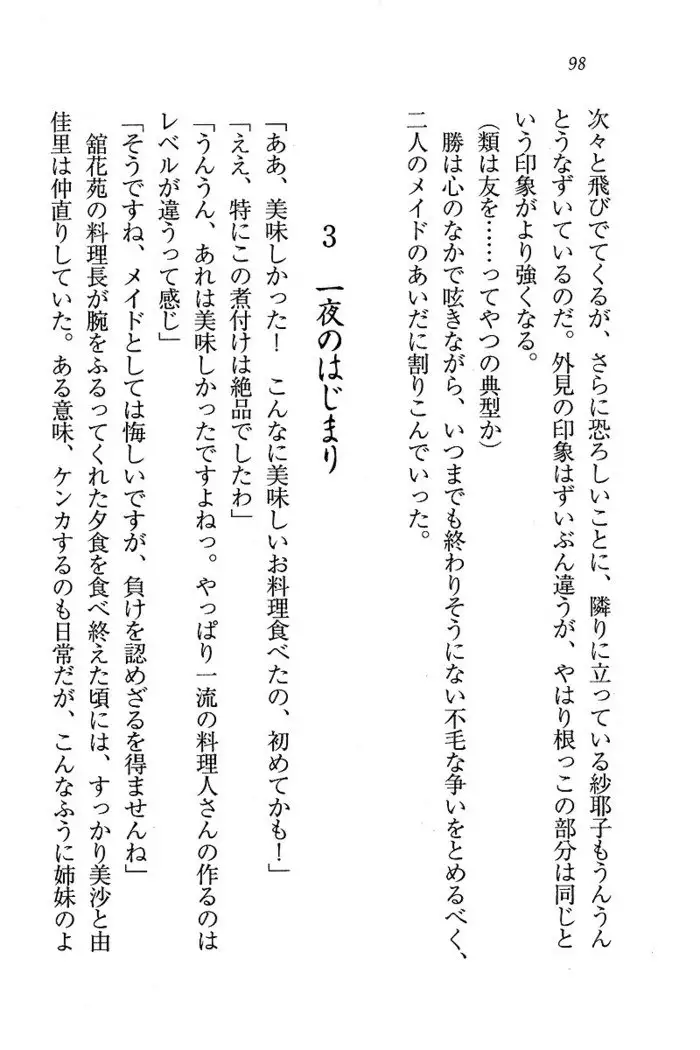 98
次々と飛びでてくるが、さらに恐ろしいことに、隣りに立っている紗耶子もうんうん
とうなずいているのだ。外見の印象はずいぶん違うが、やはり根っこの部分は同じと
いう印象がより強くなる。
（類は友を……ってやつの典型か）
勝は心のなかで呟きながら、いつまでも終わりそうにない不毛な争いをとめるべく、
二人のメイドのあいだに割りこんでいった。
3　一夜のはじまり
「ああ、美味しかった！　こんなに美味しいお料理食べたの、初めてかも！」
「ええ、特にこの煮付けは絶品でしたわ」
「うんうん、あれは美味しかったですよねっ。やっぱり一流の料理人さんの作るのは
レベルが違うって感じ」
「そうですね、メイドとしては悔しいですが、負けを認めざるを得ませんね」
舘花苑の料理長が腕をふるってくれた夕食を食べ終えた頃には、すっかり美沙と由
佳里は仲直りしていた。ある意味、ケンカするのも日常だが、こんなふうに姉妹のよ